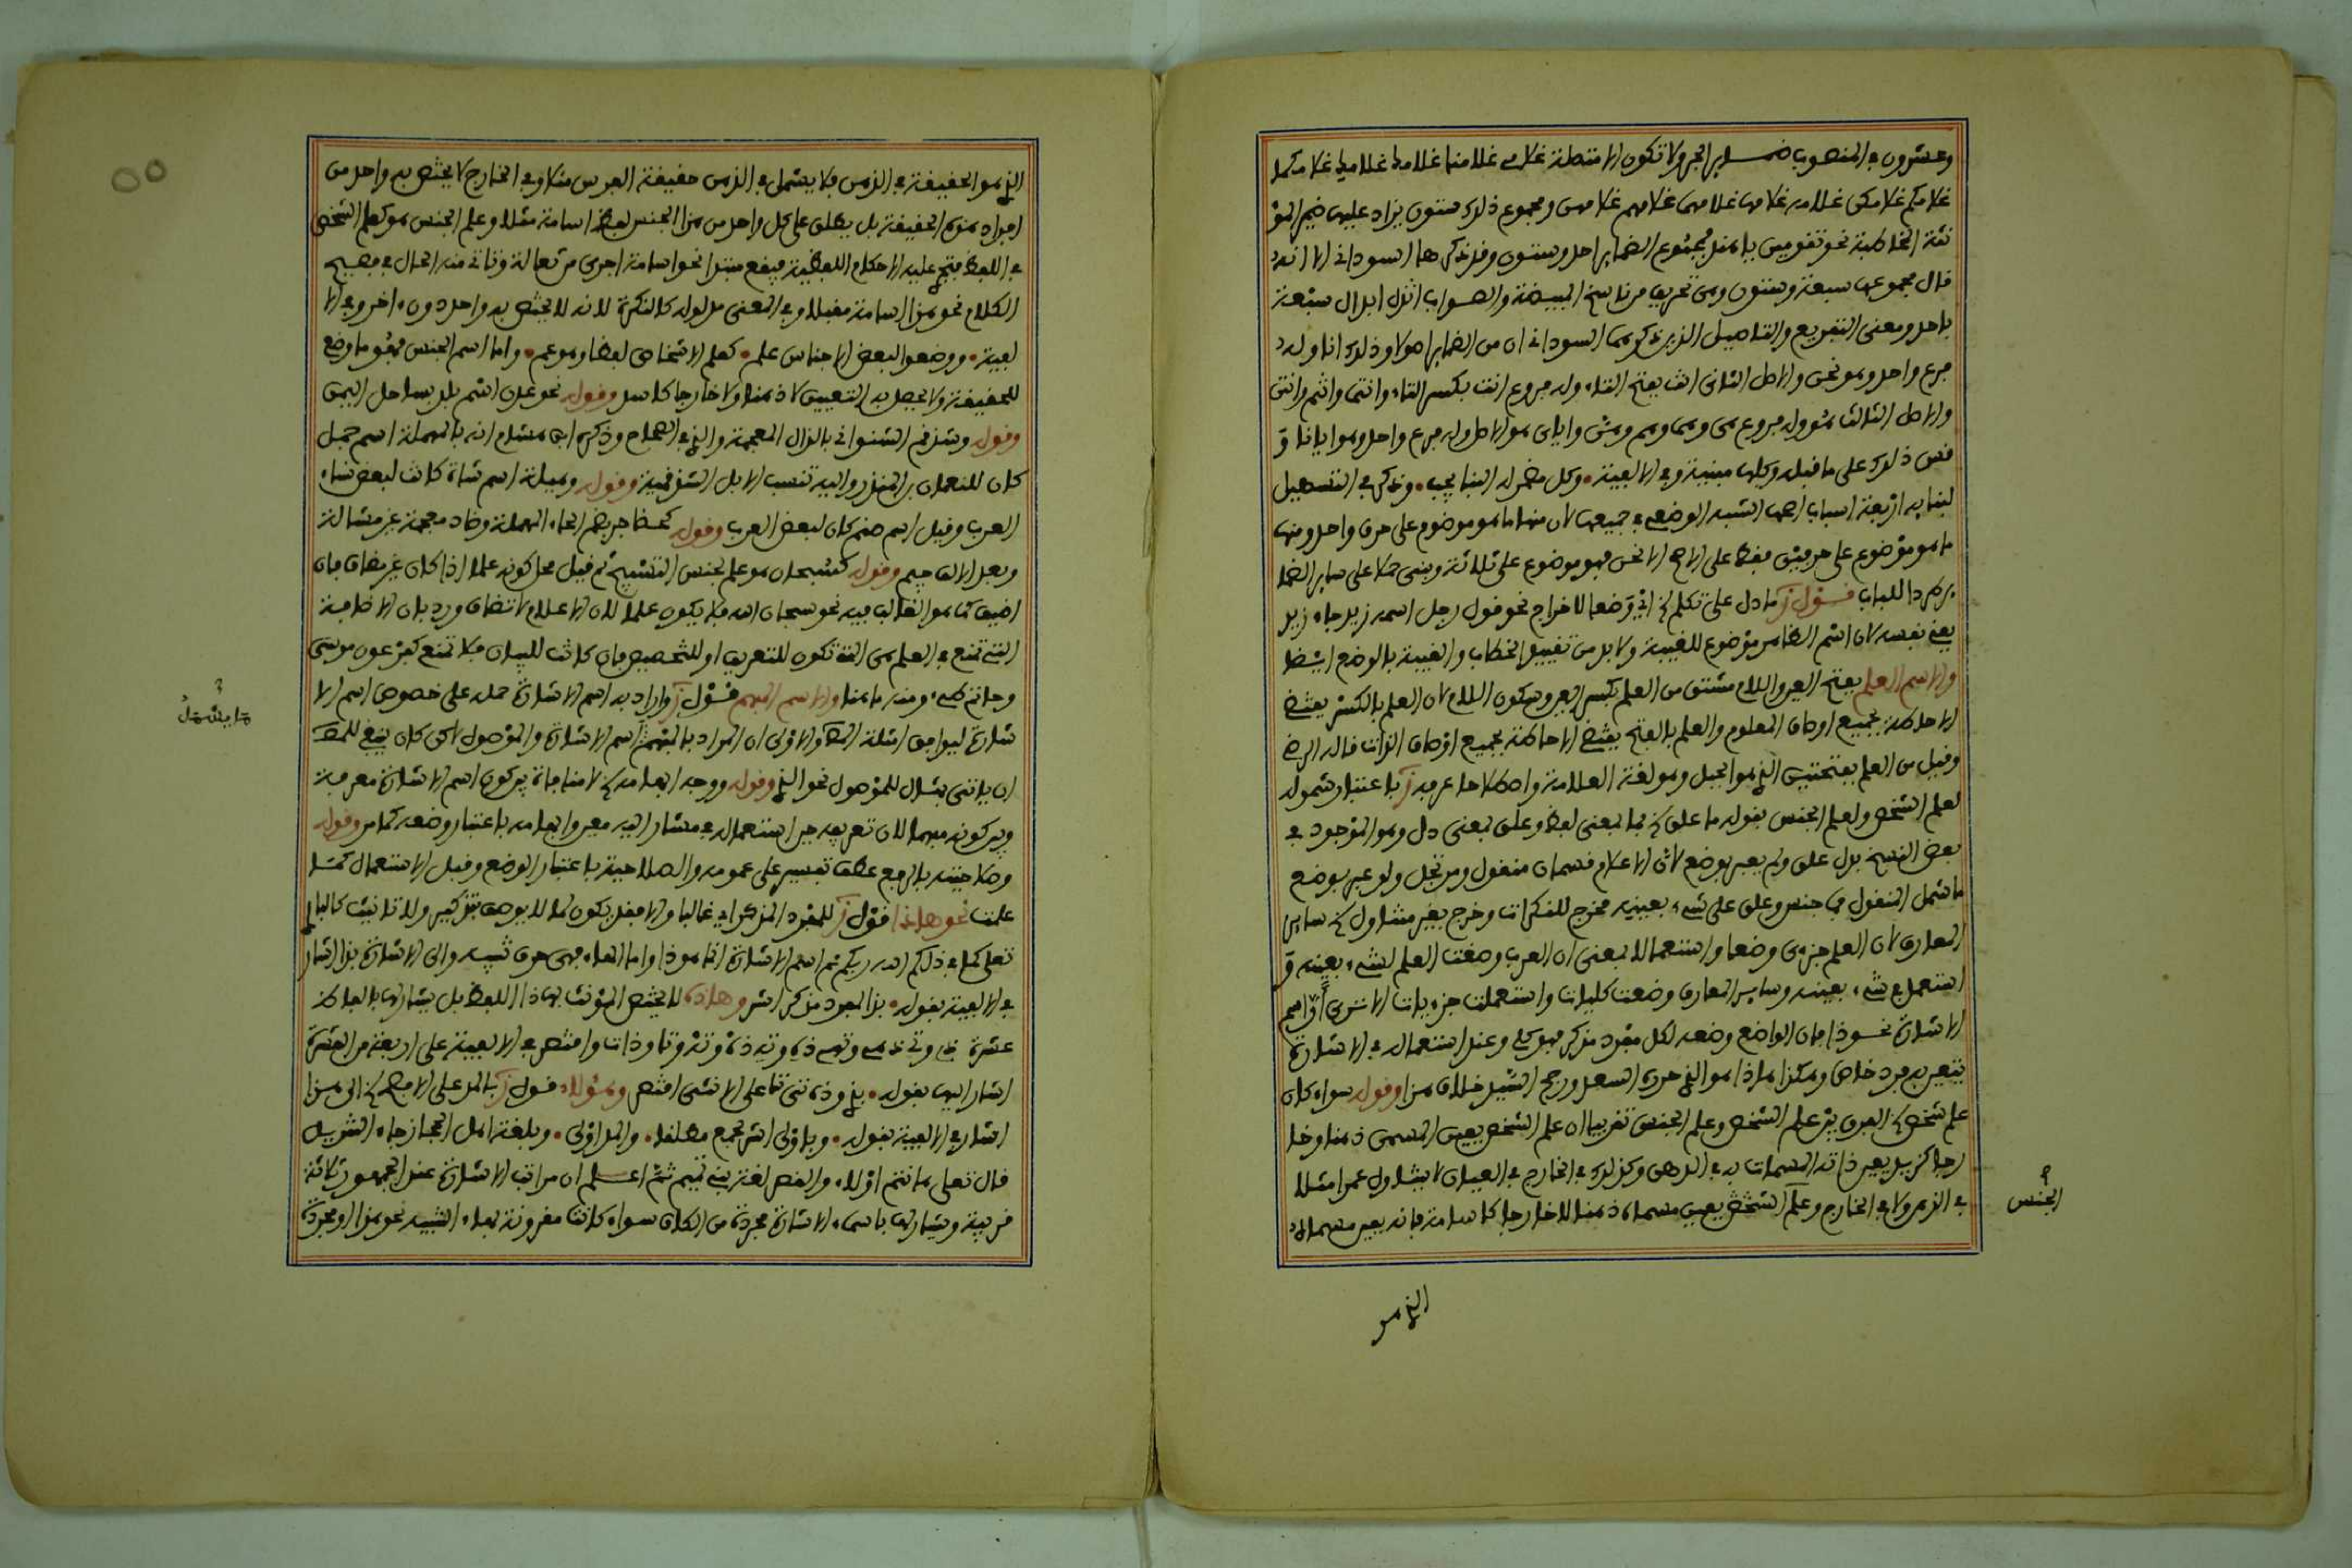 وعشرون في المنصوب ضماير الجر ولا تكون الا متصلة غلامي غلامنا غلامك غلامك غلامكما
غلامكم غلامكن غلامه غلامها غلامهما غلامهم غلامهن ومجموع ذلك ستون يزاد عليها ضمير المؤ
نثة المخاطبة نحو تقومين يا هند فمجموع الضماير احد وستون وقد ذكرها السوداني الا انه
قال مجموعها سبعة وستون وهي تحريف من ناسخ المبيضة والصواب ابدال سبعة
باحد ومعنى التفريع والتاصيل الذي ذكرهما السوداني ان من الضماير اصولا وذلك انا وله
فرع واحد وهو نحن والاصل الثاني انت بفتح التاء وله فروع انت بكسر التاء وانتما وانتم وانتن
والاصل الثالث هو وله فروع هي وهما وهم وهن واياي هو الاصل وله فرع واحد وهو ايانا و
قس ذلك على ما قبله وكلها مبنية وفي الالفية • وكل مضمر له البنا يجب • وذكر في التسهيل
لبنايه اربعة اسباب اصحها الشبه الوضعي في جميعها لان منها ما هو موضوع على حرف واحد ومنها
ما هو موضوع على حرفين فقط على الاصح الا نحن فهو موضوع على ثلاثة وبني حملا على ساير الضما
ير طردا للباب قول ز ما دل على تكلم الخ اي وضعا لاخراج نحو قول رجل اسمه زيد جاء زيد
يعني نفسه لان اسم الظاهر موضوع للغيبة ولا بد من تقييد الخطاب والغيبة بالوضع ايضا
والاسم العلم بفتح العين واللام مشتق من العلم بكسر العين وسكون اللام لان العلم بالكسر يقتضي
الاحاطة بجميع اوصاف المعلوم والعلم بالفتح يقتضي الاحاطة بجميع اوصاف الذات قاله الرضي
وقيل من العلم بفتحتين الذي هو الجبل وهو لغة العلامة واصطلاحا عرفه ز باعتبار شموله
لعلم الشخص ولعلم الجنس بقوله ما علق الخ فما بمعنى لفظ وعلق بمعنى دل وهو الموجود في
بعض النسخ بدل علق ولم يعبر بوضع لان الاعلام قسمان منقول ومرتجل ولو عبر بوضع
ما شمل المنقول فما جنس وعلق على شيء بعينه مخرج للنكرات وخرج بغير متناول الخ ساير
المعارف لان العلم جزءي وضعا واستعمالا بمعنى ان العرب وضعت العلم لشيء بعينه و
استعمل في شيء بعينه وساير المعارف وضعت كليات واستعملت جزءيات الا ترى ان اسم
الاشارة نحو ذا فان الواضع وضعه لكل مفرد مذكر فهو كلي وعند استعماله في الاشارة
يتعين به فرد خاص وهكذا هذا هو الذي حرره السعد ورجح السيد خلاف هذا وقوله سواء كان
علم شخص الخ الفرق بين علم الشخص وعلم الجنس تقريبا ان علم الشخص يعين المسمى ذهنا وخا
رجا كزيد يعين ذاته المسمات به في الذهن وكذلك في الخارج في العيان لا يتناول عمرا مثلا
في الذهن ولا في الخارج وعلم الشخص يعين مسماه ذهنا لا خارجا كاسامة فانه يعين مسماه
الجنس
الذي هو
الذي هو الحقيقة في الذهن فلا يشمل في الذهن حقيقة الفرس مثلا وفي الخارج لا يختص به واحد من
افراد هذه الحقيقة بل يطلق على كل واحد من هذا الجنس لفظ اسامة مثلا وعلم الجنس هو كعلم الشخص
في اللفظ فتجري عليه الاحكام اللفظية فيقع مبتدا نحو اسامة اجرى من ثعالة وتاتي منه الحال في فصيح
الكلام نحو هذا اسامة مقبلا وفي المعنى مدلوله كالنكرة لانه لا يختص به واحد دون اخر وفي الا
لفية • ووضعوا لبعض الاجناس علم • كعلم الاشخاص لفظا وهو عم • واما اسم الجنس فهو ما وضع
للحقيقة ولا يحصل به التعيين لا ذهنا ولا خارجا كاسد وقوله نحو عدن اسم بلد بساحل اليمن
وقوله وشذقم الشنواني بالذال المعجمة والذي في الصحاح وذكره ابن هشام انه بالمهملة اسم جمل
كان للنعمان بن المنذر واليه تنسب الابل الشذقمية وقوله وهيلة اسم شاة كانت لبعض نساء
العرب وقيل اسم صنم كان لبعض العرب وقوله كحضاجر بضم الحاء المهملة وضاد معجمة غير مشالة
وبعد الالف جيم وقوله كسبحان هو علم لجنس التسبيح ثم قيل محل كونه علما اذا كان غير مضاف فان
اضيف كما هو الغالب فيه نحو سبحان الله فلا يكون علما لان الاعلام لا تضاف ورد بان الاضافة
التي تمتع في العلم هي التي تكون للتعريف او للتخصيص فان كانت للبيان فلا تمنع كفرعون موسى
وحاتم طيء ومنه ما هنا والاسم المبهم قول ز واراد به اسم الاشارة حمله على خصوص اسم الا
شارة ليوافق امثلة المص والاولى ان المراد بالمبهم اسم الاشارة والموصول لكن كان ينبغي للمص
ان ياتي بمثال للموصول نحو الذي وقوله ووجه ابهامه الخ لا منافاة بين كون اسم الاشارة معرفة
وبين كونه مبهما لان تعريفه حين استعماله في مشار اليه معين وابهامه باعتبار وضعه كما مر وقوله
وصلاحيته بالرفع عطف تفسير على عمومه والصلاحية باعتبار الوضع وقبل الاستعمال كما
علمت نحو هذا قول ز للمفرد المذكر اي غالبا والا فقد يكون لما لا يوصف بتذكير ولا تانيث كالبا
تعلى كما في ذلكم الله ربكم ثم اسم الاشارة انما هو ذا واما الهاء فهي حرف تنبيه والى الاشارة بذا اشار
في الالفية بقوله • بذا لمفرد مذكر اشر وهذه لا يختص المؤنث بهذا اللفظ بل يشار لها بالفاظ
عشرة ذي وتي وذه وته وذه وته وتا وذات واقتصر في الالفية على اربعة من العشرة
اشار اليها بقوله • بذي وذه تي تا على الانثى اقتصر وهؤلاء قول ز بالمد على الافصح الخ الى هذا
اشار في الالفية بقوله • وباولى اشر لجمع مطلقا • والمد اولى • وبلغة اهل الحجاز جاء التنزيل
قال تعلى ها انتم اولاء والقصر لغة بني تميم ثم اعلم ان مراتب الاشارة عند الجمهور ثلاثة
قريبة ويشار لها باسماء الاشارة مجردة من الكاف سواء كانت مقرونة بهاء التنبيه نحو هذا او مجردة
ما يشمل